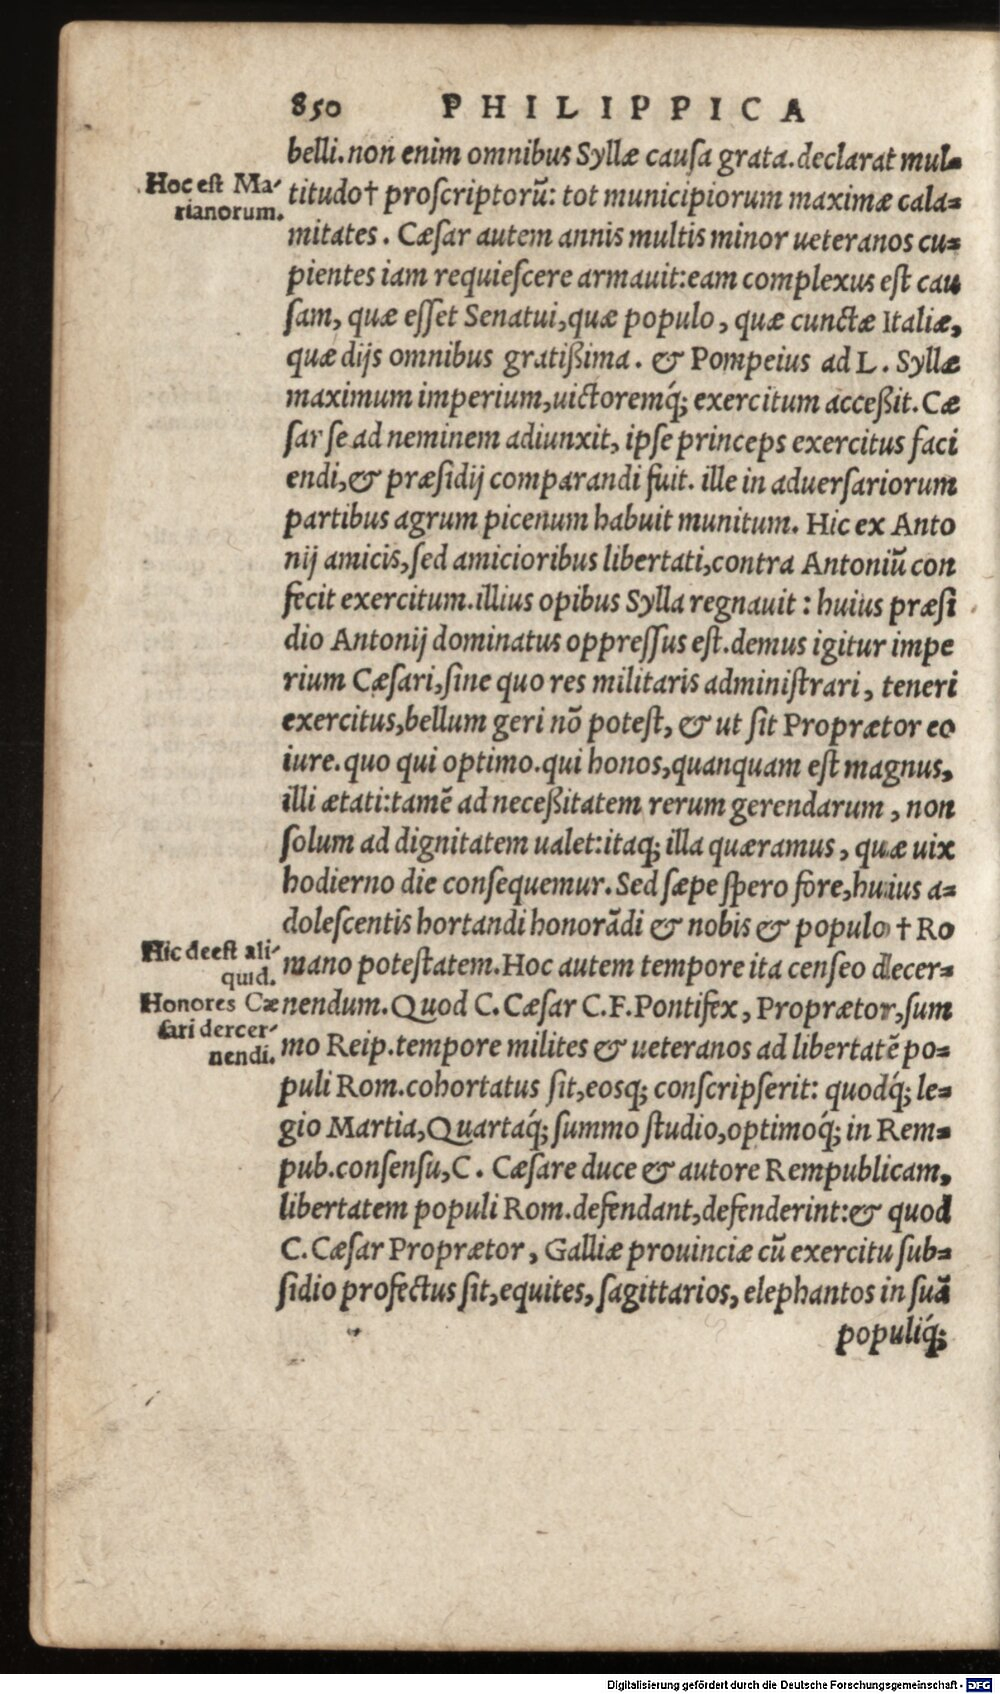 850 PHILIPPICA
belli.non enim omnibus Syllæ cauſa grata.declarat mul-
Hoc est Ma-
rianorum.
titudo† proſcriptorũ: tot municipiorum maximæ cala-
mitates. Cæſar autem annis multis minor ueteranos cu-
pientes iam requieſcere armauit:eam complexus eſt cau
ſam, quæ eſſet Senatui,quæ populo, quæ cunctæ Italiæ,
quæ dijs omnibus gratißima. & Pompeius ad L. Syllæ
maximum imperium,uictoremq́; exercitum acceßit. Cæ
ſar ſe ad neminem adiunxit, ipſe princeps exercitus faci
endi,& præſidij comparandi fuit. ille in aduerſariorum
partibus agrum picenum habuit munitum. Hic ex Anto
nij amicis,ſed amicioribus libertati,contra Antoniũ con
fecit exercitum.illius opibus Sylla regnauit: huius præſi
dio Antonij dominatus oppreſſus eſt.demus igitur impe
rium Cæſari,ſine quo res militaris adminiſtrari, teneri
exercitus,bellum geri nõ poteſt, & ut ſit Proprætor eo
iure.quo qui optimo.qui honos,quanquam eſt magnus,
illi ætati:tamẽ ad neceßitatem rerum gerendarum, non
ſolum ad dignitatem ualet:itaq; illa quæramus, quæ uix
hodierno die conſequemur. Sed ſæpe ſpero fore,huius a-
doleſcentis hortandi honorãdi & nobis & populo † Ro
Hic deest ali-
quid.
mano poteſtatem. Hoc autem tempore ita cenſeo decer-
Honores Cæ
ſari dercer-
nendi.
nendum. Quod C. Cæſar C.F. Pontifex, Proprætor,ſum
mo Reip.tempore milites & ueteranos ad libertatẽ po-
puli Rom.cohortatus ſit,eosq; conſcripſerit: quodq́; le-
gio Martia,Quartaq́; ſummo ſtudio,optimoq́; in Rem-
pub.conſenſu,C. Cæſare duce & autore Rempublicam,
libertatem populi Rom.defendant,defenderint:& quod
C. Cæſar Proprætor, Galliæ prouinciæ cũ exercitu ſub-
ſidio profectus ſit,equites, ſagittarios, elephantos in ſuã
populiq́;
Digitalisierung gefördert durch die Deutsche Forschungsgemeinschaft - DFG